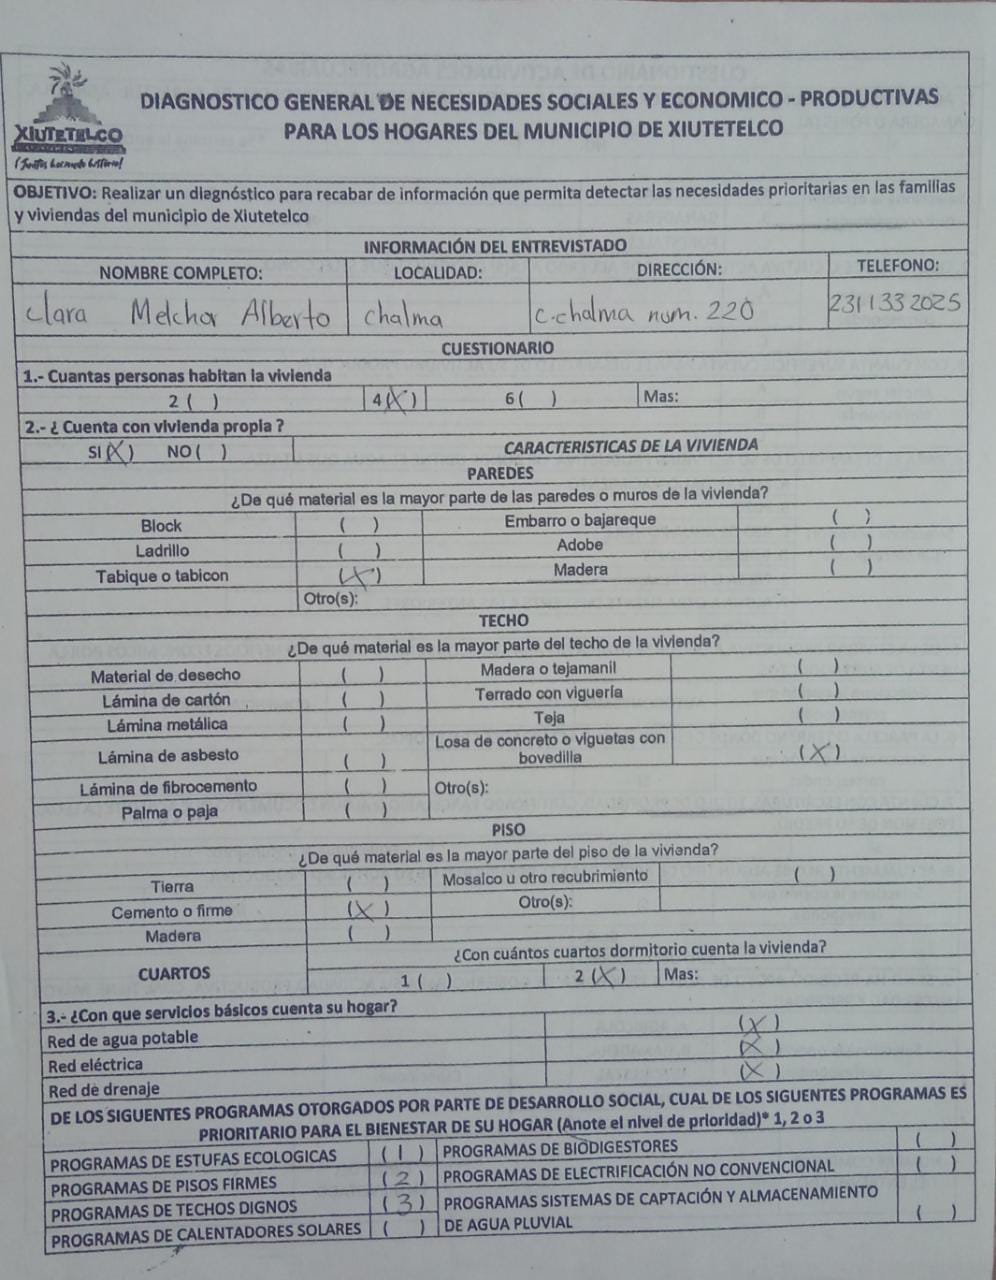 XIUTETELCO
¡Juntos haciendo historia!
DIAGNOSTICO GENERAL DE NECESIDADES SOCIALES Y ECONOMICO - PRODUCTIVAS
PARA LOS HOGARES DEL MUNICIPIO DE XIUTETELCO
OBJETIVO: Realizar un diagnóstico para recabar de información que permita detectar las necesidades prioritarias en las familias
y viviendas del municipio de Xiutetelco
INFORMACIÓN DEL ENTREVISTADO
NOMBRE COMPLETO: LOCALIDAD: DIRECCIÓN: TELEFONO:
Clara Melchor Alberto chalma C.chalma num. 220 231133 2025
CUESTIONARIO
1.- Cuantas personas habitan la vivienda
2 ( ) 4 (X) 6 ( ) Mas:
2.- ¿ Cuenta con vivienda propia ?
SI (X) NO ( ) CARACTERISTICAS DE LA VIVIENDA
PAREDES
¿De qué material es la mayor parte de las paredes o muros de la vivienda?
Block ( ) Embarro o bajareque ( )
Ladrillo ( ) Adobe ( )
Tabique o tabicon (X) Madera ( )
Otro(s):
TECHO
¿De qué material es la mayor parte del techo de la vivienda?
Material de desecho ( ) Madera o tejamanil ( )
Lámina de cartón ( ) Terrado con viguería ( )
Lámina metálica ( ) Teja ( )
Lámina de asbesto ( ) Losa de concreto o viguetas con
bovedilla (X)
Lámina de fibrocemento ( ) Otro(s):
Palma o paja ( )
PISO
¿De qué material es la mayor parte del piso de la vivienda?
Tierra ( ) Mosaico u otro recubrimiento ( )
Cemento o firme (X) Otro(s):
Madera ( )
CUARTOS ¿Con cuántos cuartos dormitorio cuenta la vivienda?
1 ( ) 2 (X) Mas:
3.- ¿Con que servicios básicos cuenta su hogar?
Red de agua potable (X)
Red eléctrica (X)
Red de drenaje (X)
DE LOS SIGUENTES PROGRAMAS OTORGADOS POR PARTE DE DESARROLLO SOCIAL, CUAL DE LOS SIGUENTES PROGRAMAS ES
PRIORITARIO PARA EL BIENESTAR DE SU HOGAR (Anote el nivel de prioridad)* 1, 2 o 3
PROGRAMAS DE ESTUFAS ECOLOGICAS (1) PROGRAMAS DE BIODIGESTORES ( )
PROGRAMAS DE PISOS FIRMES (2) PROGRAMAS DE ELECTRIFICACIÓN NO CONVENCIONAL ( )
PROGRAMAS DE TECHOS DIGNOS (3) PROGRAMAS SISTEMAS DE CAPTACIÓN Y ALMACENAMIENTO
PROGRAMAS DE CALENTADORES SOLARES ( ) DE AGUA PLUVIAL ( )